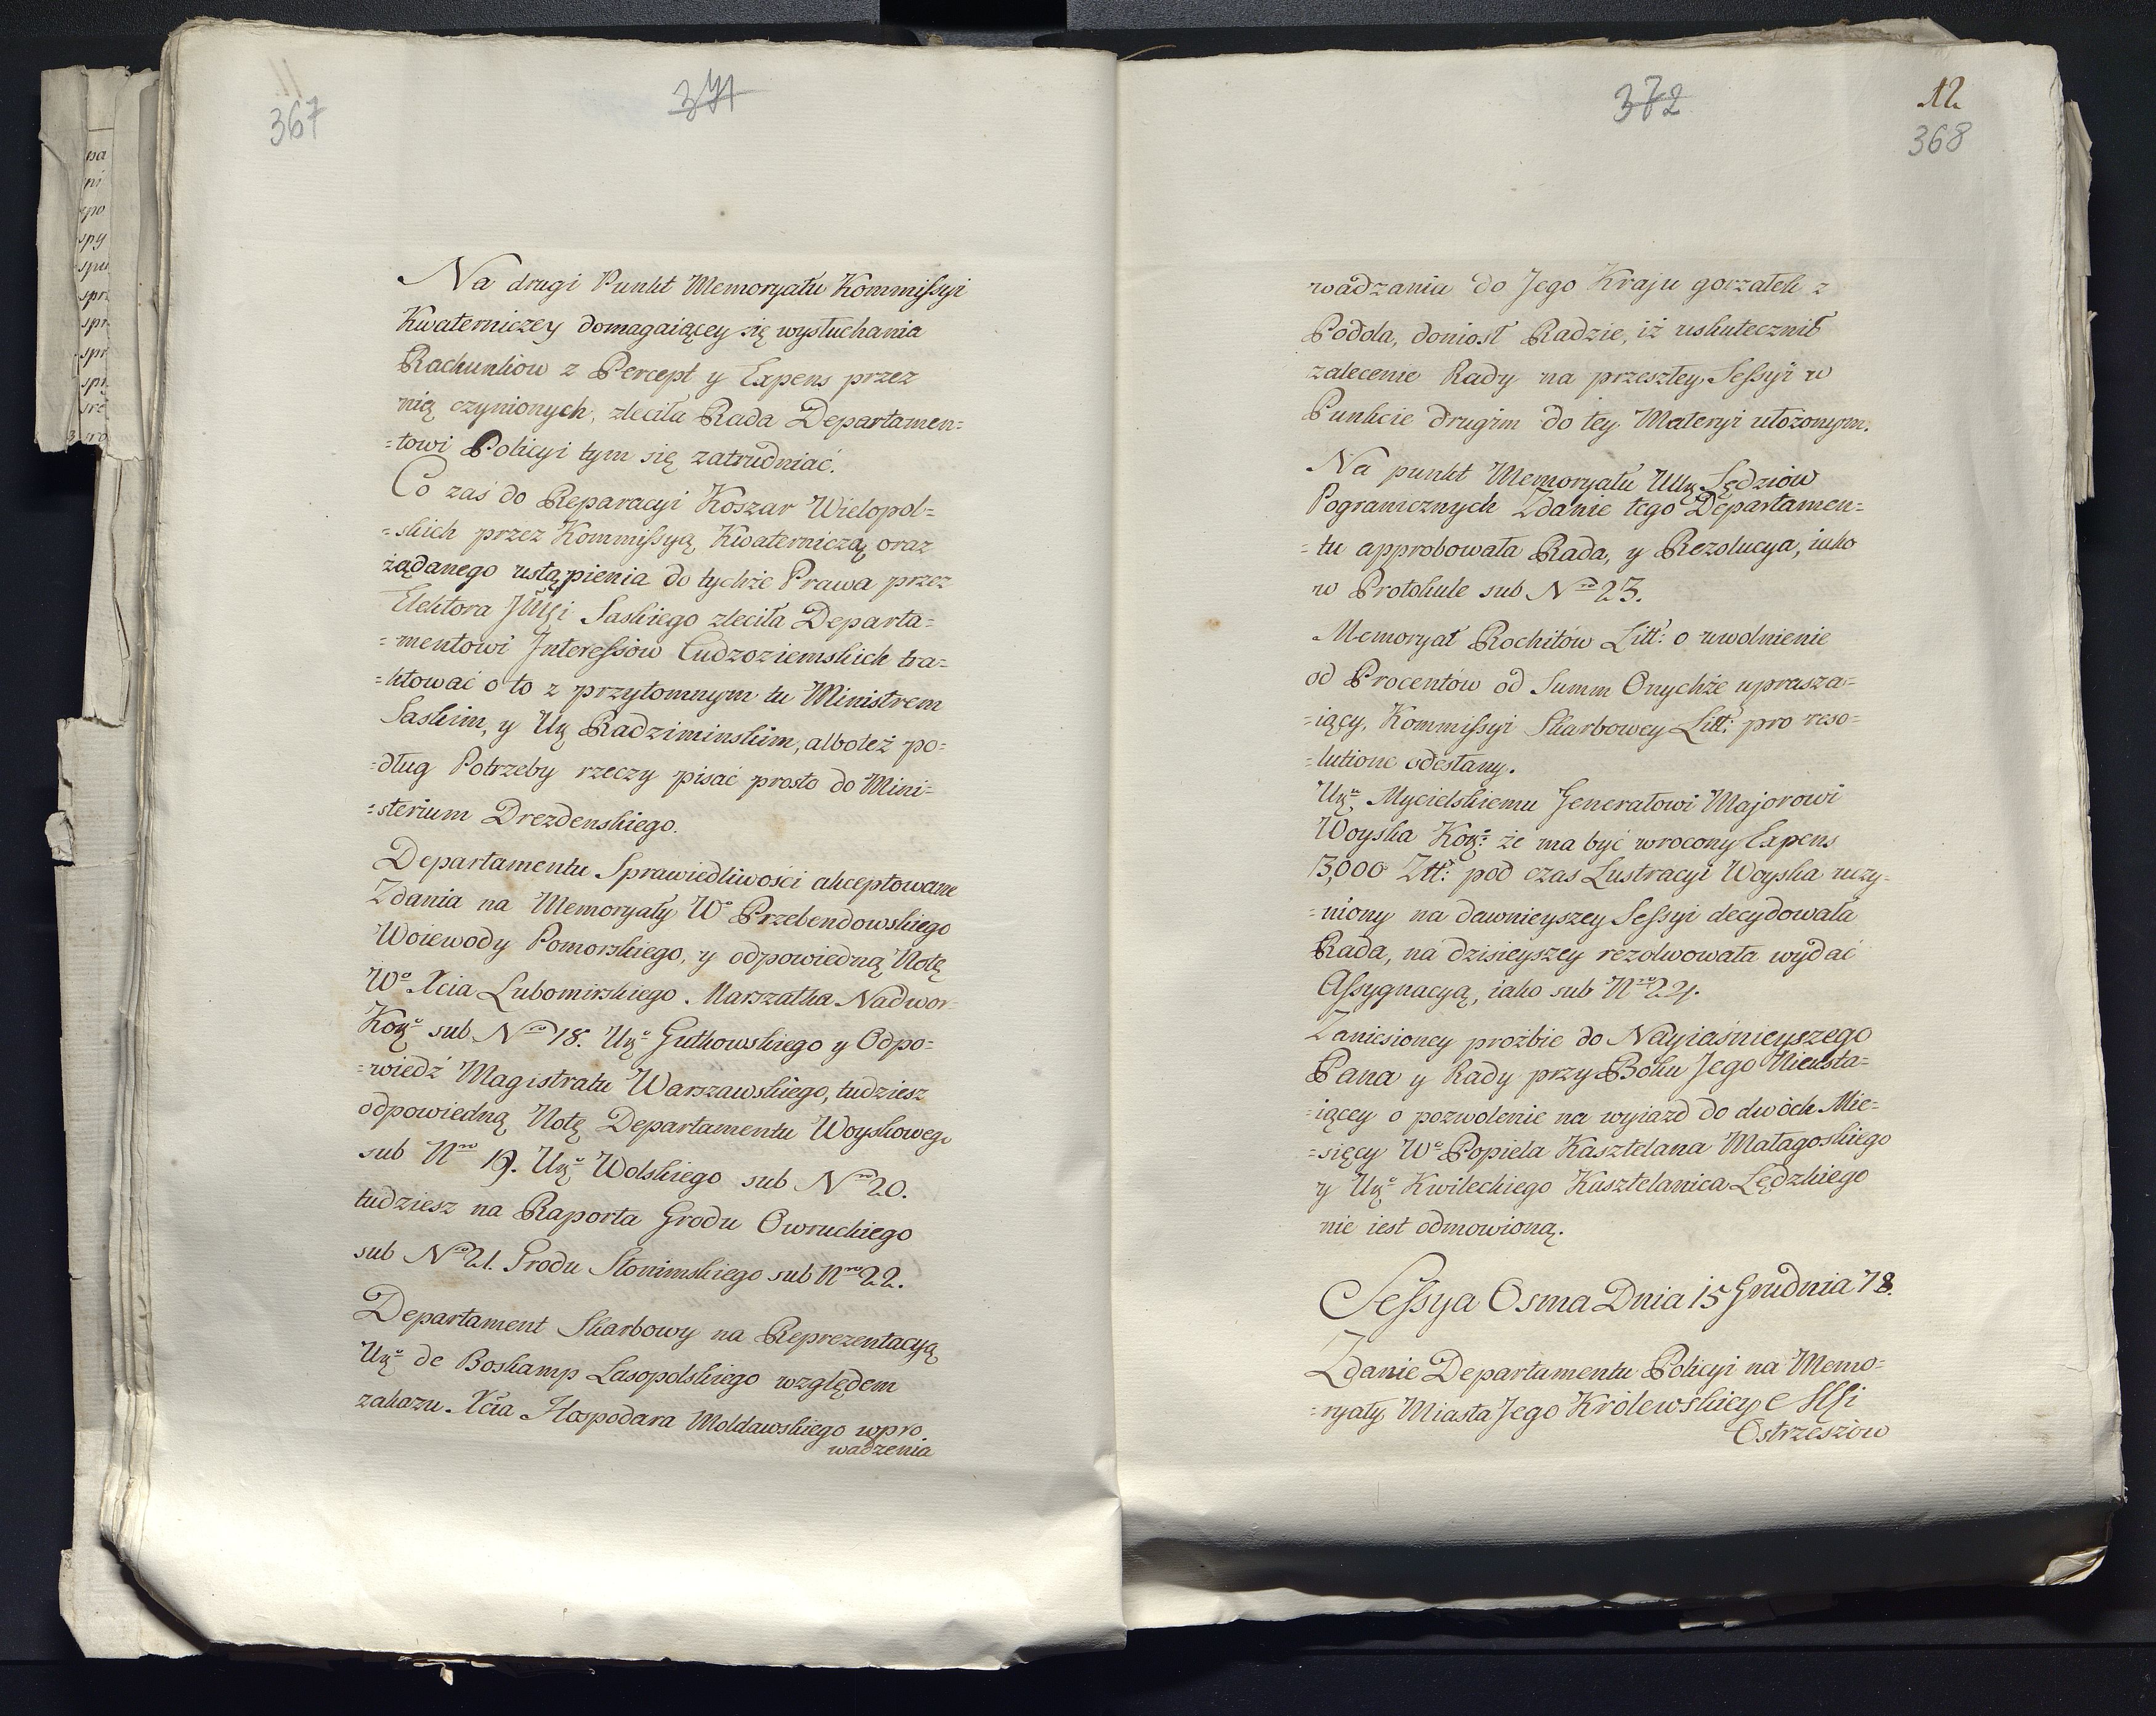 367
371
Na drugi Punkt Memoryału Kommissyi
Kwaterniczey domagaiącey się wysłuchania
Rachunkow z Percept y Expens przez
nią czynionych, zleciła Rada Departamen=
=towi Policyi tym się zatrudniać.
Co zaś do Reparacyi Koszar Wielopol=
=skich przez Kommissyą Kwaterniczą, oraz
żądanego ustąpienia do tychże Prawa przez
Elektora Saskiego zleciła Departa=
=mentowi Interessow Cudzoziemskich tra=
=ktować o to z przytomnym tu Ministrem
Saskim, y Ur Radziminskim, albo też po=
=dług Potrzeby rzeczy pisać prosto do Mini=
=sterium Drezdenskiego.
Departamentu Sprawiedliwości akceptowane
Zdania na Memoryały Wo Przebendowskiego
Woiewody Pomorskiego, y odpowiedną Notę
Wo Xcia Lubomirskiego Marszałka Nadwor=
Kor: sub Nro 18. Uro Gutkowskiego y Odpo=
=wiedź Magistratu Warszawskiego, tudziesz
odpowiedną Notę Departamentu Woyskowego
sub Nro 19. Uro Wolskiego sub Nro 20.
tudziesz na Raporta Grodu Owruckiego
sub Nro 21. Grodu Słonimskiego sub Nro 22.
Departament Skarbowy na Reprezentacyą
Uro de Boskamp Lasopolskiego względem
zakazu Xcia Hospodara Moldawskiego wpro
wadzenia
372
12
368
wadzania do Jego Kraju gorzałek z
Podola, doniosł Radzie, iż uskutecznił
zalecenie Rady na przeszłey Sessyi w
Punkcie drugim do tey Materyi ułożonym.
Na punkt Memoryału UUr Sędziow
Pogranicznych Zdanie tego Departamen=
=tu approbowała Rada, y Rezolucya, iako
w Protokule sub Nro 23.
Memoryał Rochitów Litt: o uwolnienie
od Procentów od Summ Onychże uprasza=
=iący, Kommissyi Skarbowey Litt: pro reso=
=lutione odesłany.
Uro Mycielskiemu Generałowi Majorowi
Woyska Kor: że ma być wrocony Expens
13,000 Ztł: pod czas Lustracyi Woyska uczy=
=niony na dawnieyszey Sessyi decydowała
Rada, na dzisieyszey rezolwowała wydać
Assygnacyą, iako sub Nro 24.
Zaniesioney proźbie do Nayiaśnieyszego
Pana y Rady przy Boku Jego Nieusta=
=iącey o pozwolenie na wyiazd do dwóch Mie=
=sięcy Wo Popiela Kasztelana Małagoskiego
y Uro Kwileckiego Kasztelanica Lędzkiego
nie iest odmowioną.
Sessya Osma Dnia 15 Grudnia 78.
Zdanie Departamentu Policyi na Memo=
=ryały Miasta Jego Królewskiey Mści
Ostrzeszów